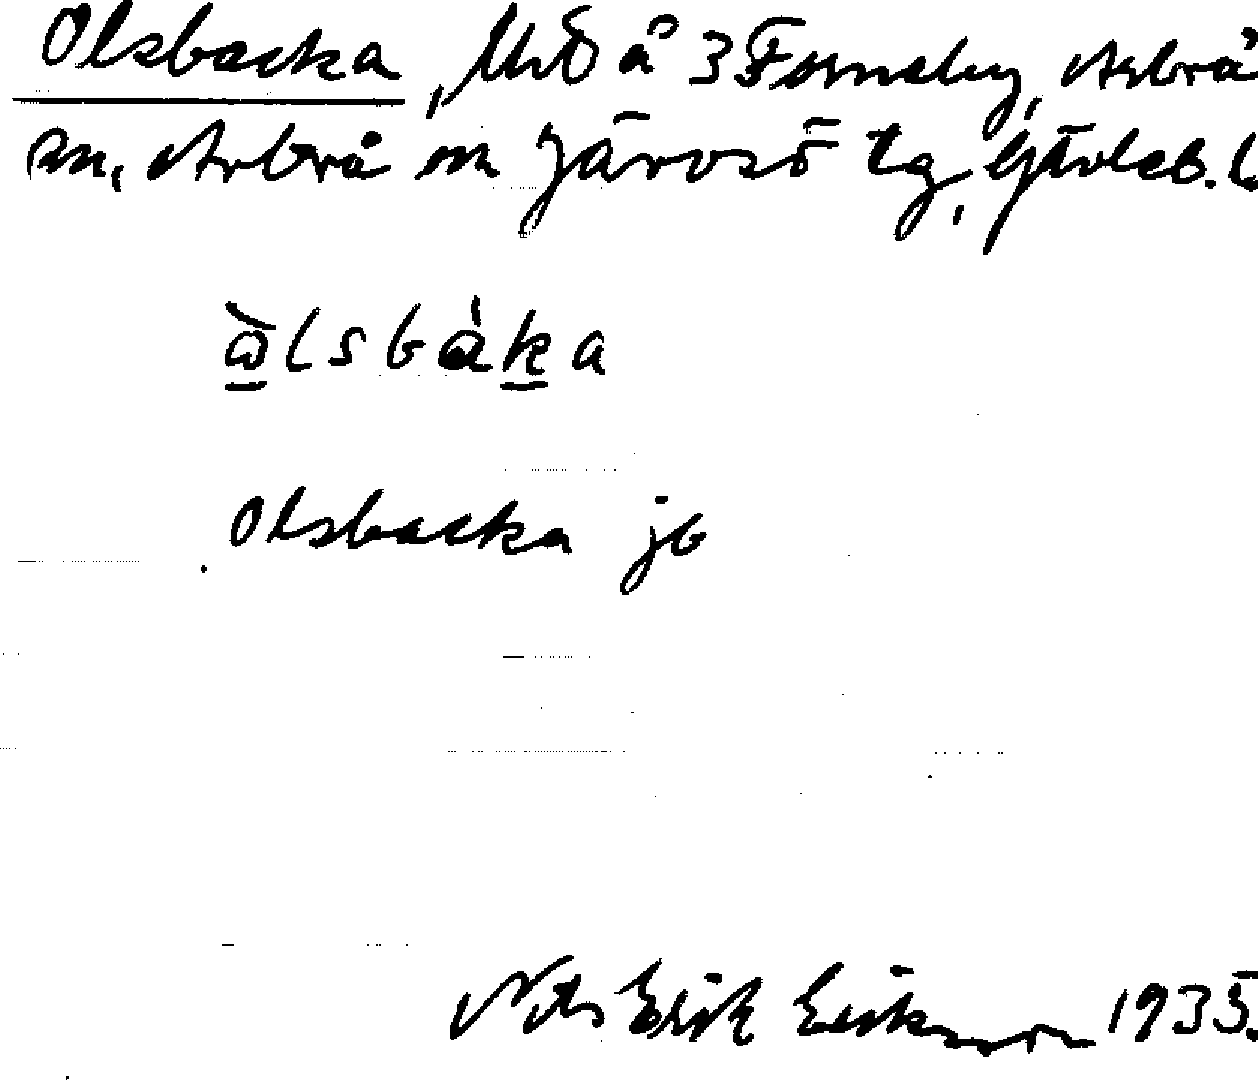 Olsbacka, Urð å 3 Forneby, Arbrå
sn, Arbrå o Järvsö tg, Gävleb. l
å̀lsbàka
Olsbacka jb
Nils Erik Eriksson 1935.